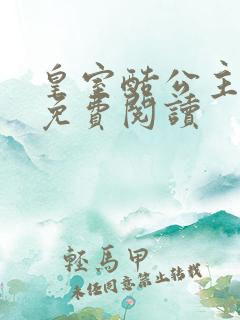 皇室酷公主
免費閱讀
輕馬甲
未經同意禁止轉載